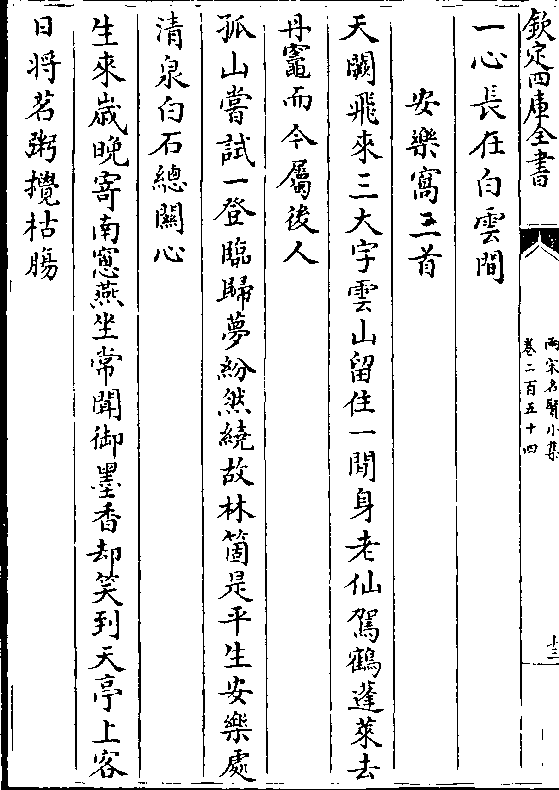 欽定四庫全書
兩宋名賢小集
卷二百五十四
十三
一心長在白雲間
安樂窩三首
天闕飛來三大字雲山留住一閒身老仙駕鶴蓬萊去
丹竈而今屬後人
孤山嘗試一登臨歸夢紛然繞故林箇是平生安樂處
清泉白石總關心
生來歲晚寄南窻燕坐常聞御墨香却笑到天亭上客
日將茗粥攪枯腸